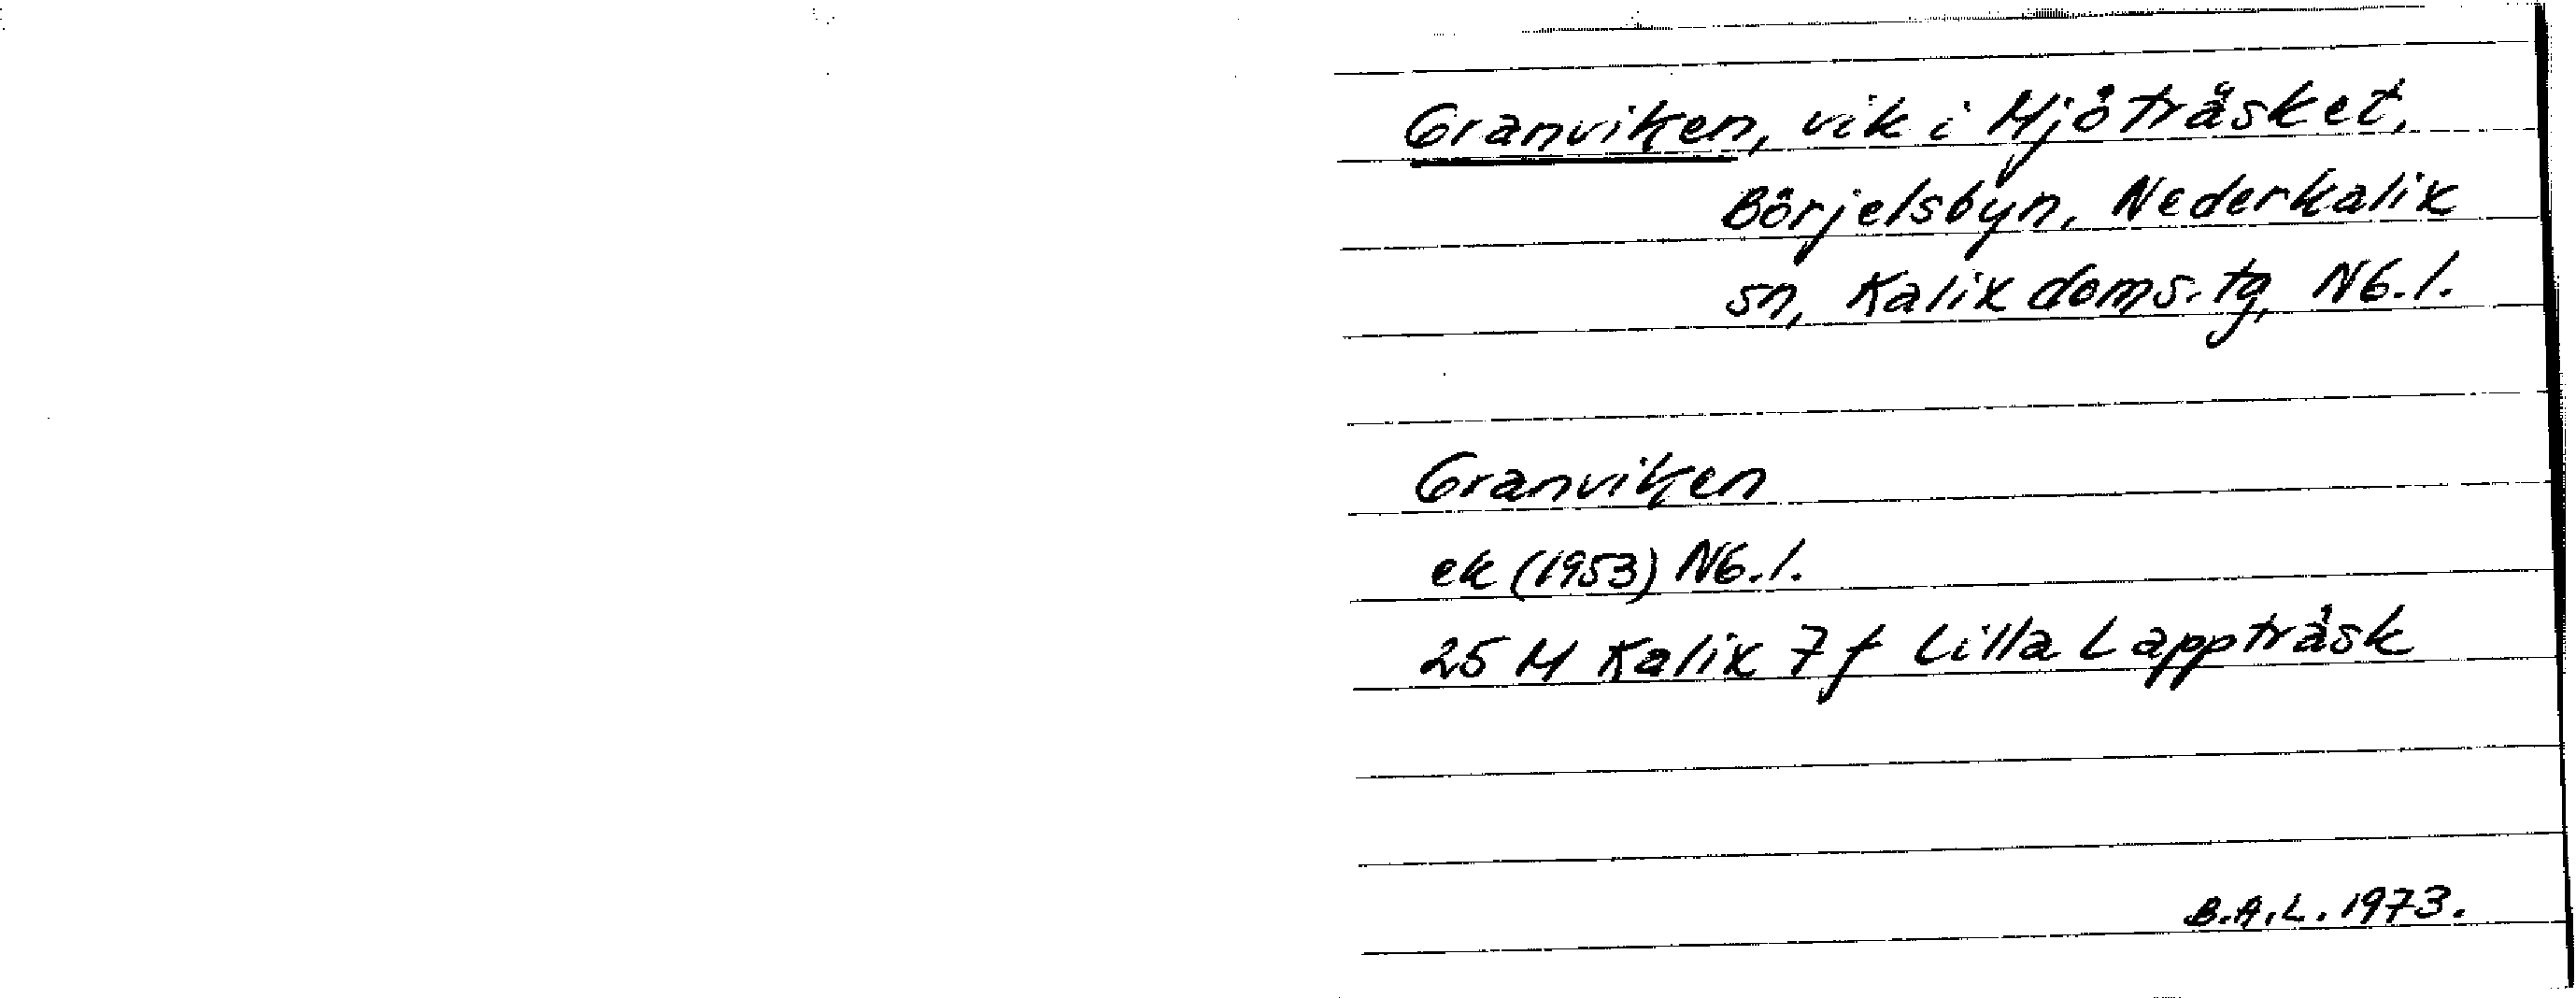 Granviken, vik i Mjöträsket,
Börjelsbyn, Nederkalix
sn, Kalix doms.tg, Nb.l.
Granviken
ek (1953) Nb.l.
25 M Kalix 7 f Lilla Lappträsk
B.A.L. 1973.